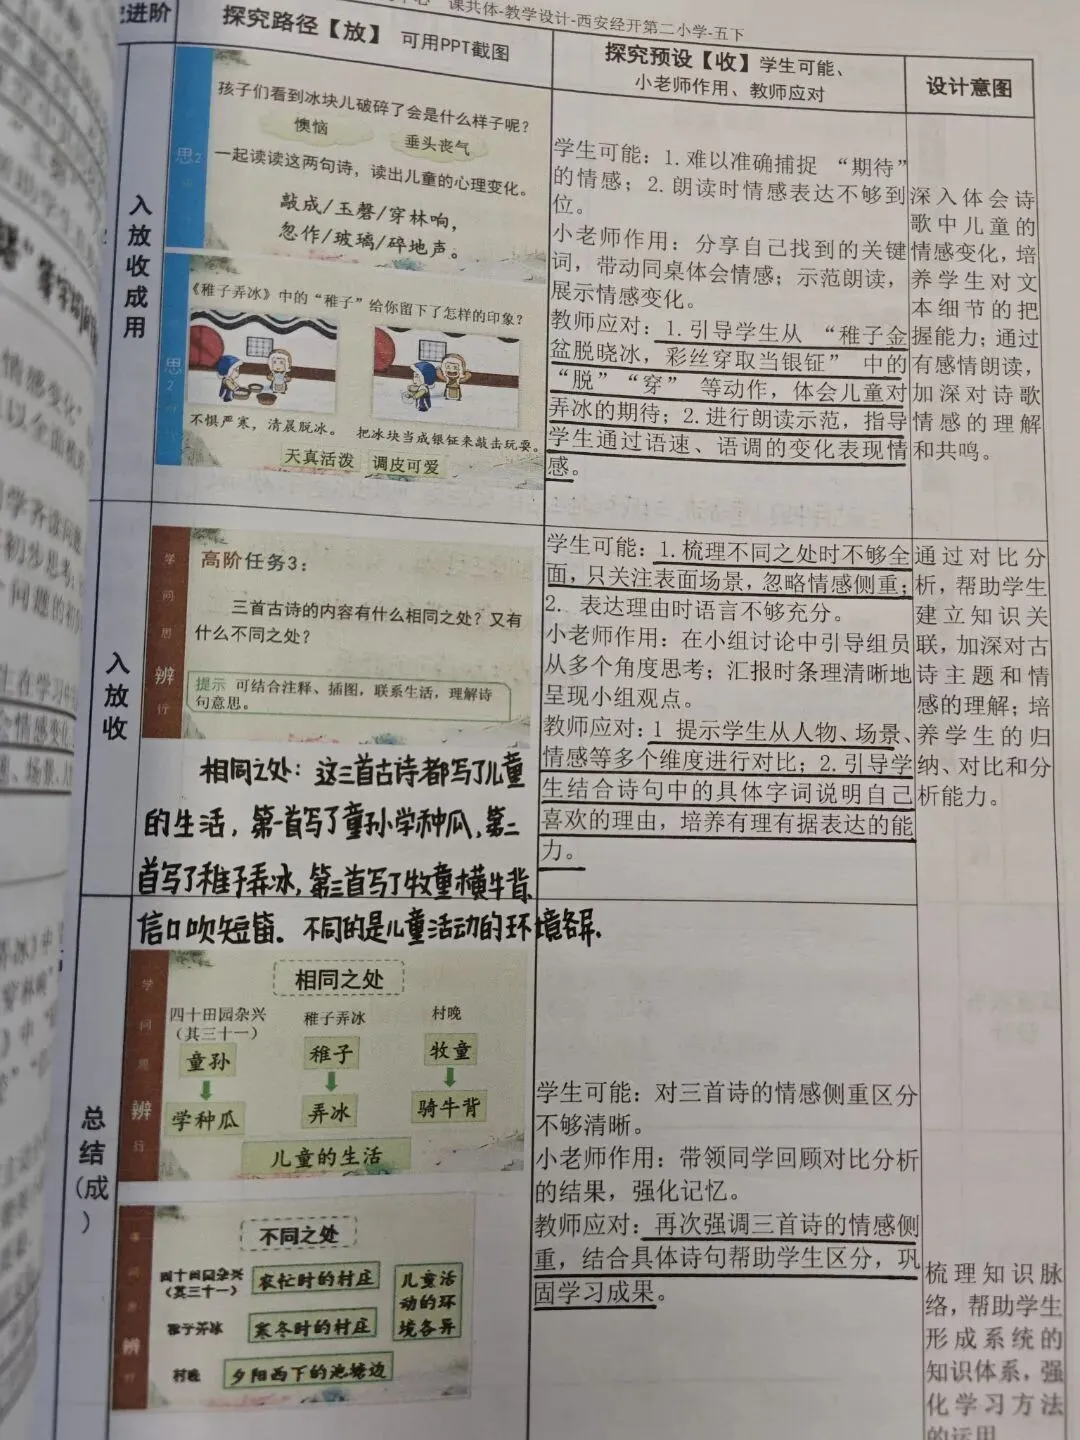 课共体-教学设计-西安经开第二小学-五下
进阶
探究路径【放】 可用PPT截图
探究预设【收】学生可能、
小老师作用、教师应对
设计意图
入放收成用
思2
孩子们看到冰块儿破碎了会是什么样子呢?
懊恼
垂头丧气
一起读读这两句诗,读出儿童的心理变化。
敲成/玉磬/穿林响,
忽作/玻璃/碎地声。
思2
《稚子弄冰》中的“稚子”给你留下了怎样的印象?
不惧严寒,清晨脱冰。
把冰块当成银钲来敲击玩耍。
天真活泼
调皮可爱
学生可能:1.难以准确捕捉 “期待”
的情感;2.朗读时情感表达不够到
位。
小老师作用:分享自己找到的关键
词,带动同桌体会情感;示范朗读,
展示情感变化。
教师应对:1.引导学生从 “稚子金
盆脱晓冰,彩丝穿取当银钲” 中的
“脱” “穿” 等动作,体会儿童对
弄冰的期待;2.进行朗读示范,指导
学生通过语速、语调的变化表现情
感。
深入体会诗
歌中儿童的
情感变化,培
养学生对文
本细节的把
握能力;通过
有感情朗读,
加深对诗歌
情感的理解
和共鸣。
入放收
学
问
思
辨
行
高阶任务3:
三首古诗的内容有什么相同之处?又有
什么不同之处?
提示 可结合注释、插图,联系生活,理解诗
句意思。
相同之处:这三首古诗都写了儿童
的生活,第一首写了童孙学种瓜,第二
首写了稚子弄冰,第三首写了牧童横牛背,
信口吹短笛. 不同的是儿童活动的环境各异.
学生可能:1.梳理不同之处时不够全
面,只关注表面场景,忽略情感侧重;
2. 表达理由时语言不够充分。
小老师作用:在小组讨论中引导组员
从多个角度思考;汇报时条理清晰地
呈现小组观点。
教师应对:1 提示学生从人物、场景、
情感等多个维度进行对比;2.引导学
生结合诗句中的具体字词说明自己
喜欢的理由,培养有理有据表达的能
力。
通过对比分
析,帮助学生
建立知识关
联,加深对古
诗主题和情
感的理解;培
养学生的归
纳、对比和分
析能力。
总结(成)
学
问
思
辨
行
相同之处
四十田园杂兴
(其三十一)
稚子弄冰
村晚
童孙
稚子
牧童
学种瓜
弄冰
骑牛背
儿童的生活
辨
不同之处
四十田园杂兴
(其三十一)
农忙时的村庄
稚子弄冰
寒冬时的村庄
村晚
夕阳西下的池塘边
儿童活
动的环
境各异
学生可能:对三首诗的情感侧重区分
不够清晰。
小老师作用:带领同学回顾对比分析
的结果,强化记忆。
教师应对:再次强调三首诗的情感侧
重,结合具体诗句帮助学生区分,巩
固学习成果。
梳理知识脉
络,帮助学生
形成系统的
知识体系,强
化学习方法
的运用